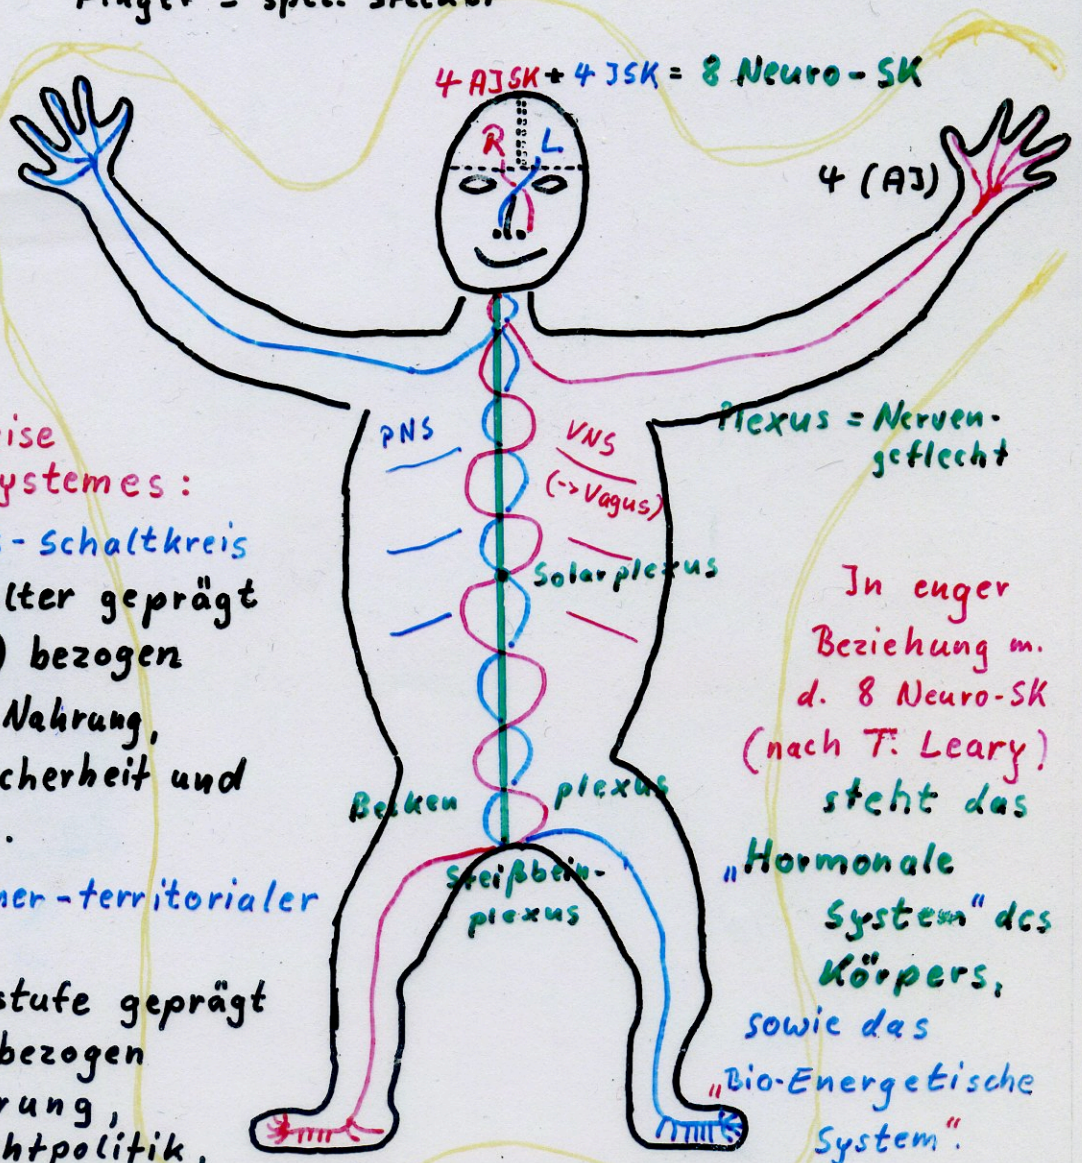 Finger = spez.
4 AJSK + 4 JSK = 8 Neuro-SK
R L
4 (AJ)
PNS
VNS
(->Vagus)
Plexus = Nerven-
geflecht
Solarplexus
Becken plexus
Steißbein-
plexus
eise
ystemes:
s-Schaltkreis
lter geprägt
) bezogen
Nahrung,
cherheit und
.
ner-territorialer
stufe geprägt
bezogen
rung,
htpolitik,
In enger
Beziehung m.
d. 8 Neuro-SK
(nach T. Leary)
steht das
„Hormonale
System" des
Körpers,
sowie das
„Bio-Energetische
System".